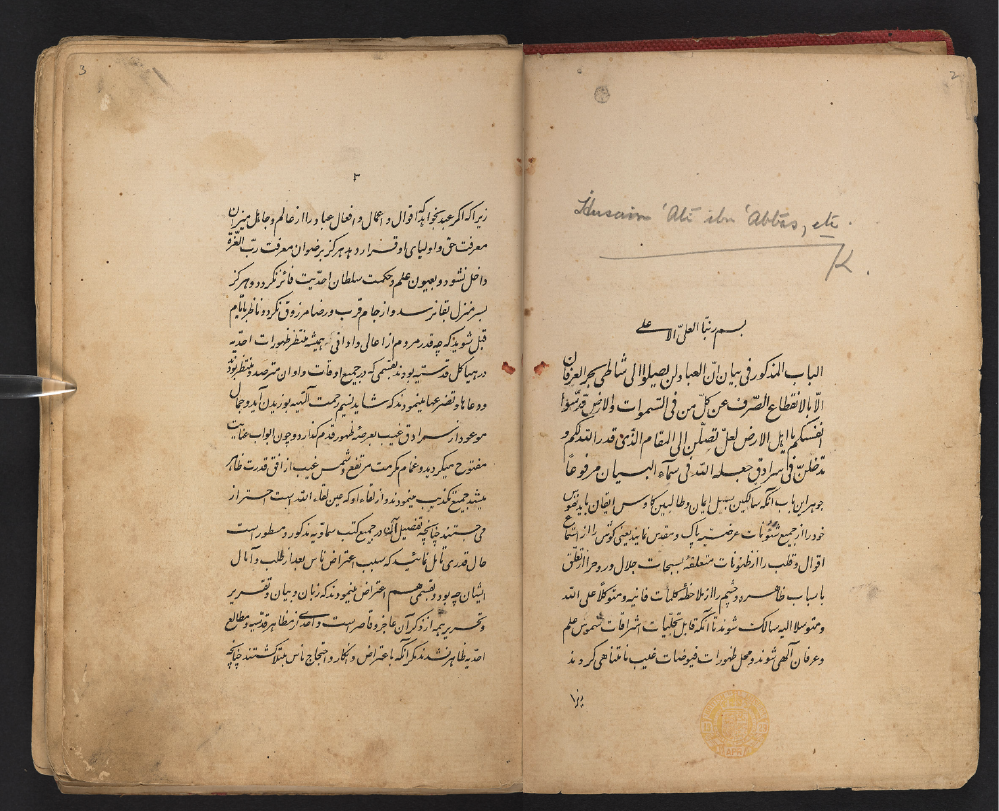 2
Husain 'Alī ibn 'Abbās, etc.
K.
بسم ربّنا العلیّ الاعلی
الباب المذکور فی بیان انّ العباد لن یصلوا الی شاطی بحر العرفان
الّا بالانقطاع الصّرف عن کلّ من فی السّموات والارض قدّسوا
انفسکم یا اهل الارض لعلّ تصلنّ الی المقام الّذی قدر اللّه لکم و
تدخلنّ فی سرادق جعله اللّه فی سمآء البیان مرفوعاً
جوهر این باب آنکه سالکین سبیل ایمان و طالبین کاوس ایقان باید نفوس
خود را از جمیع شئونات عرضیّه پاک و مقدس نمایند یعنی گوش را از استماع
اقوال و قلب را از ظنونات متعلقه بسبحات جلال و روح را از تعلق
باسباب ظاهره و چشم را از ملاحظه کلمات فانیه و متوکلاً علی اللّه
و متوسلا الیه سالک شوند تا آنکه قابل تجلیات اشراقات شموس علم
و عرفان الهی شوند و محل ظهورات فیوضات غیب نامتناهی گردند
زیرا
3
۲
زیرا که اگر عبد بخواهد که اقوال و اعمال و افعال عباد را از عالم و جاهل میزان
معرفت حق و اولیای او قرار دهد هرگز برضوان معرفت ربّ العزّة
داخل نشود و بعیون علم و حکمت سلطان احدیّت فائز نگردد و هرگز
بسر منزل بقا نرسد و از جام قرب و رضا مرزوق نگردد و ناظر بایّام
قبل شوید که چه قدر مردم از اعالی و ادانی که همیشه منتظر ظهورات احدیه
در هیاکل قدسیّه بودند بقسمی که در جمیع اوقات و اوان مترصد و منتظر بودند
و دعاها و تضرعها مینمودند که شاید نسیم رحمت الهیّه بوزیدن آید و جمال
موعود از سرادق غیب بعرصه ظهور قدم گذارد و چون ابواب عنایت
مفتوح میگردید و غمام مکرمت مرتفع و شمس غیب از افق قدرت ظاهر
میشد جمیع تکذیب مینمودند و از لقاء او که عین لقاء اللّه است احتراز
می جستند چنانچه تفصیل آن در جمیع کتب سماویه مذکور و مسطور است
حال قدری تأمل نمائید که سبب اعتراض ناس بعد از طلب و آمال
ایشان چه بود و بقسمی هم اعتراض مینمودند که زبان و بیان و تقریر
و تحریر همه از ذکر آن عاجز و قاصر است و احدی از مظاهر قدسیه و مطالع
احدیه ظاهر نشدند مگر آنکه باعتراض و انکار و احتجاج ناس مبتلا گشتند چنانچه